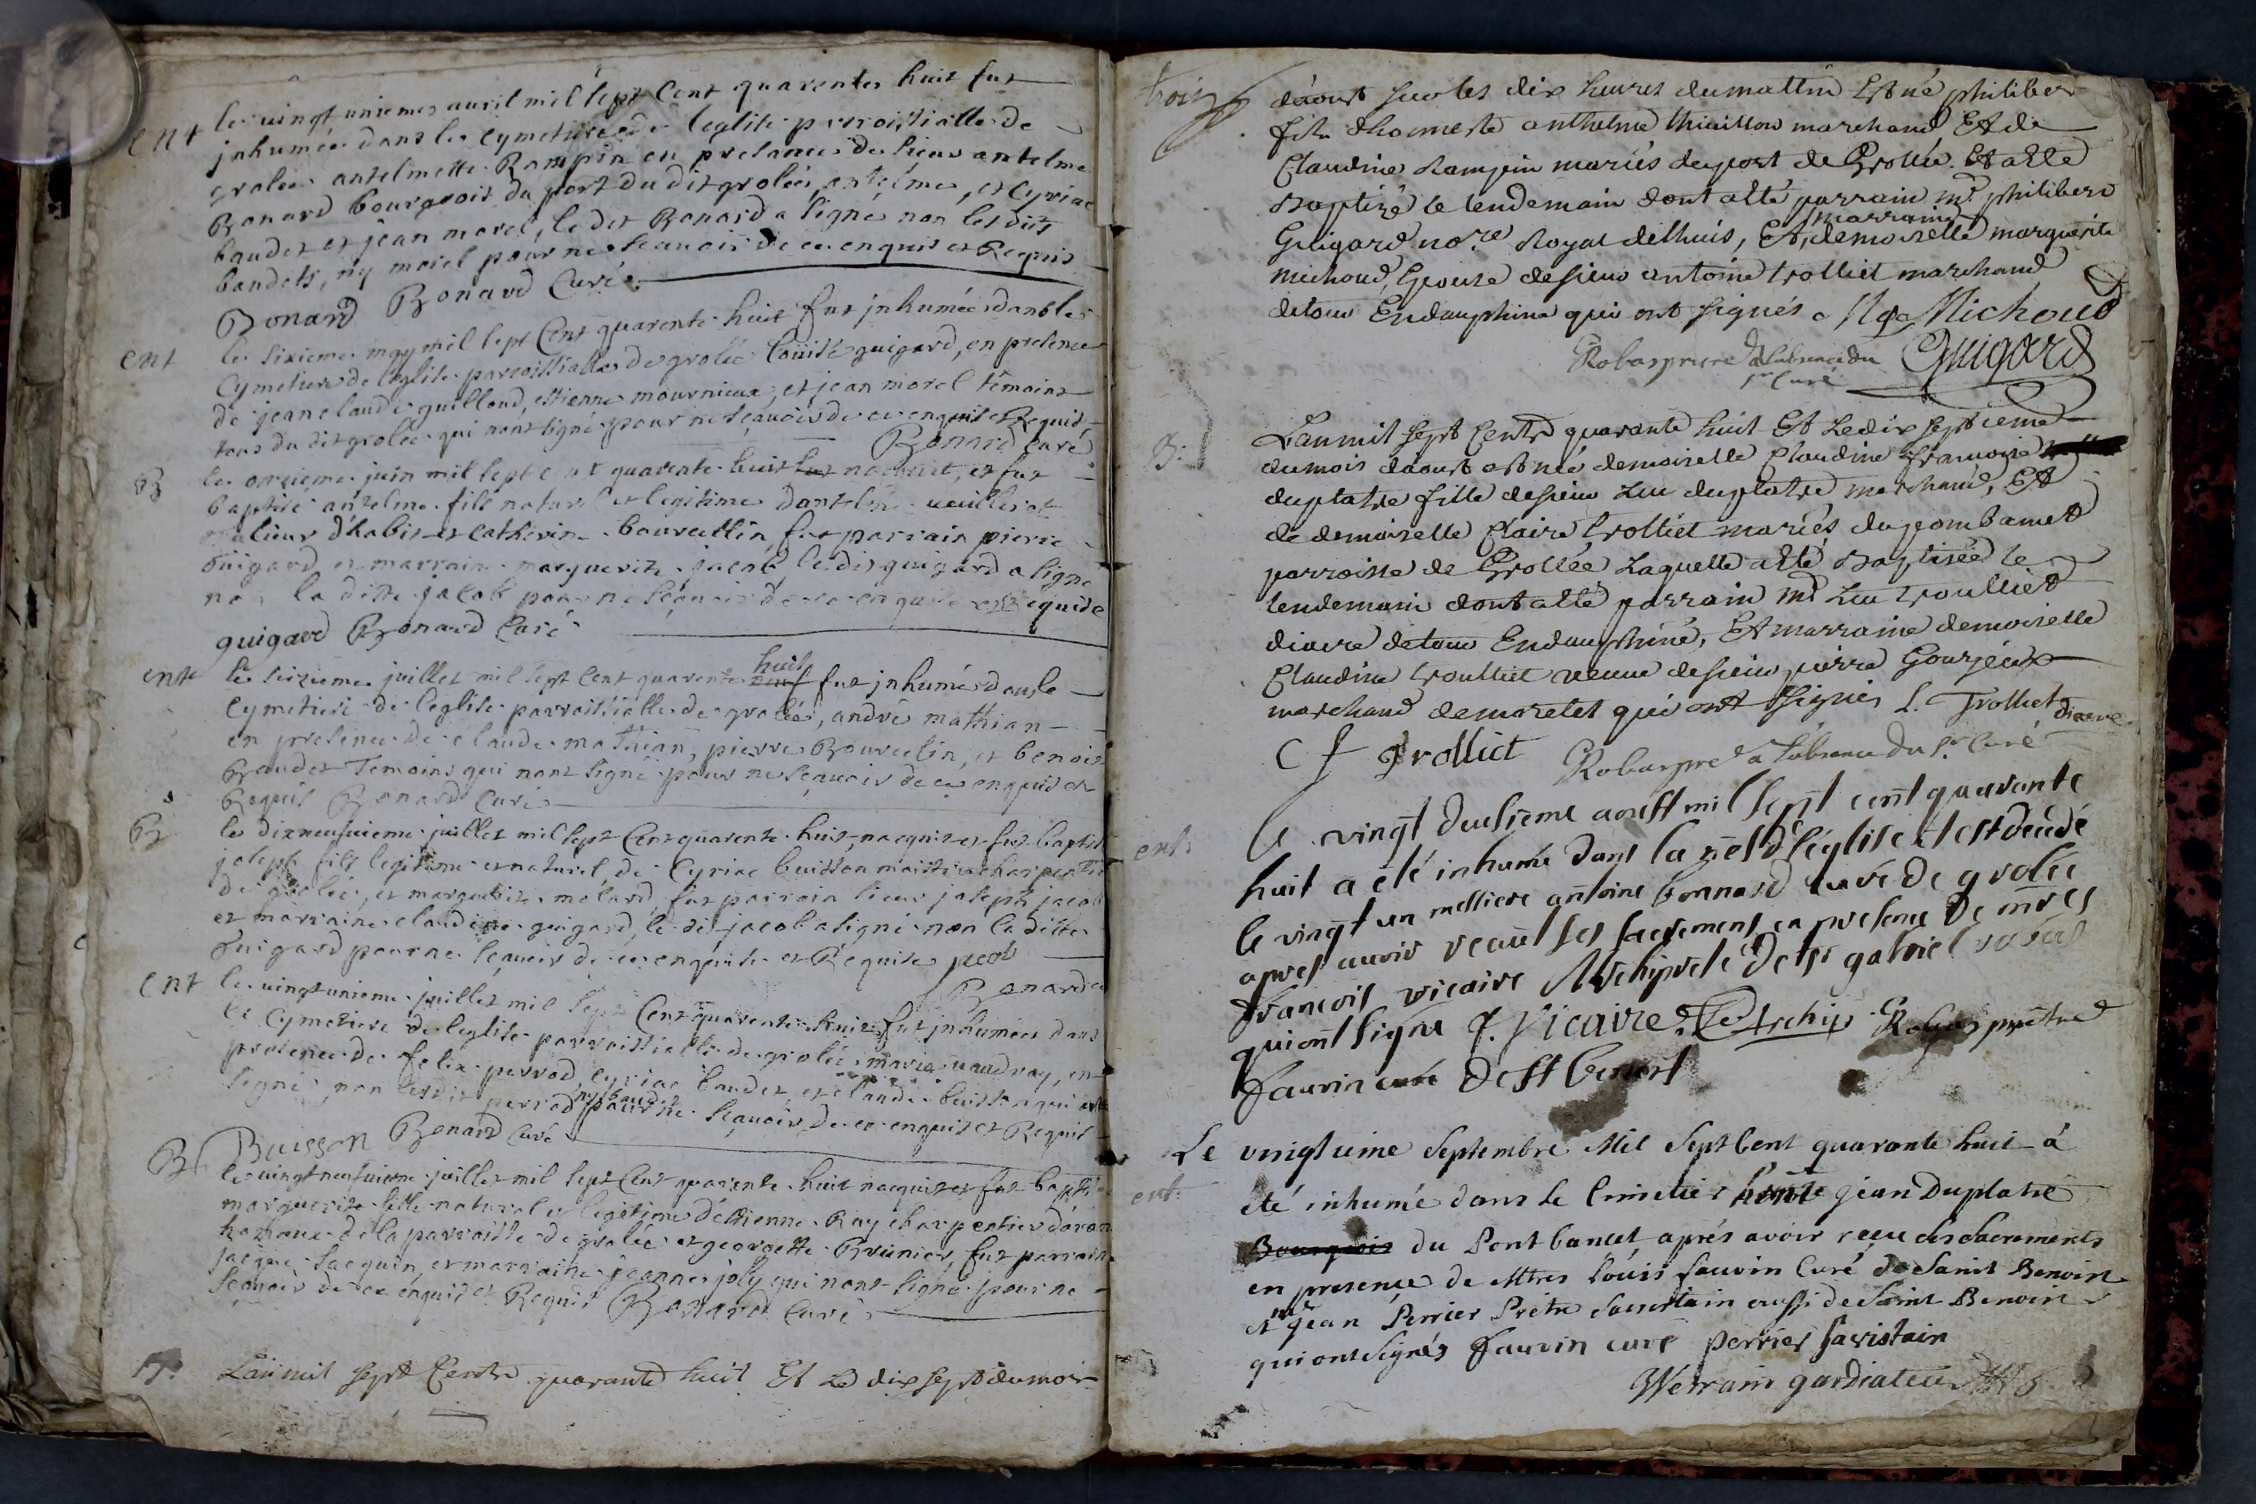 ent le vingt uniemes auril mil sept Cent quarentes huit fut
jnhumée dans le cymetiere de leglise parroissialle de
grolée antelmette Rampin en presance de sieur antelme
Bonard bourgeois du port du dit grolée, antelme, et Cyriac
baudet et jean morel, le dit Bonard a signé non les dits
baudets, ny morel pour ne sçauoir de ce enquis et Requis
Bonard Bonard Curé
ent le sixieme may mil sept Cent quarente huit fut jnhumée dans le
Cymetiere de leglise parroissialle de grolée loüise guigard, en presence
de jean claude guilloud, estienne mournieux, et jean morel temoins
tous du dit grolée qui nont signé pour ne sçauoir de ce enquis et Requis
Bonard Curé
B le onzieme juin mil sept cent quarente huit nacquit, et fut
baptisé antelme fils naturel et legitime dantelme
tailieur dhabit et catherine bourcellin, fut parrain pierre
Guigard, et marraine marguerite jacob le dit guigard a signé
non la ditte jacob pour ne sçauoir de ce enquise et Requise
guigard Bonard Curé
ent le seizieme juillet mil sept Cent quarente huit fut jnhumé dans le
Cymetiere de leglise parroissialle de grolée, andré mathian
en presence de claude mathian, pierre Bourcelin, et benoit
Baudet Temoins qui nont signé pour ne sçauoir de ce enquis et
Requis Bonard Curé
B le dixneufuieme juillet mil sept Cent quarente huit nacquit et fut baptisé
joseph fils legitime et naturel de Cyriac buisson maistre charpentier
de grolée, et marguerite molard, fut parrain sieur joseph jacob
et marraine claudine guigard, le dit jacob a signé non la ditte
Guigard pour ne sçauoir de ce enquise et Requise jacob
Bonard Cu
ent le vingt unieme juillet mil sept Cent quarente huit fut jnhumée dans
le Cymetiere de leglise parroissialle de grolée marie uaudray, en
presence de felix perrod, Cyriac baudet, et claude buisson qui a
signé, non lesdit perrod ny baudet pour ne sçauoir de ce enquis et Requis
Buisson Bonard Curé
B le vingt neufuieme juillet mil sept Cent quarente huit nacquit et fut baptisée
marguerite fille naturel et legitime destienne Ray charpentier
hameau de la parroisse de grolée et georgette Brunier, fut parrain
jacque jacquin, et marraine jeanne joly qui nont signé pour ne
sçauoir de ce enquis et Requis Bonard Curé
B. Lan mil sept Cents quarante huit Et Le dix sept du mois
daoust sur les dix heures du mattin Est né philiber
fils dhonneste anthelme thuillon marchand Et de
Claudine Rampin mariés du port de Grollée Et a Esté
Baptizé le lendemain dont a esté parrain Mr. philiber
Guigard nore. Royal de lhuis, Et marraine demoiselle marguerite
michoud, Epouse de sieur antoine trolliet marchand
de tour En dauphiné qui ont signés Mge Michoud
Robaz pretre a labsence du sr Curé Guigard
B. Lan mil Sept Cents quarante huit Et Le dix sept ieme
du mois daoust est née demoiselle Claudine francoise
duplatre fille de sieur Luc duplatre marchand, Et
de demoiselle Claire trolliet mariés du pont bancet
parroisse de Grollée Laquelle a esté Baptisée le
lendemain dont a esté parrain Mr. Luc troulliet
diacre de tour En dauphiné, Et marraine demoiselle
Claudine troulliet veuue de sieur pierre Gourjeux
marchand de morestel qui ont signés L. Trolliet diacre
C f Trolliet Robaz pre a labsence du Sr. Curé
ent. le vingt deusieme aoust mil sept cent quarante
huit a été inhumé dans la nef de l'église et est décédé
le vingt un messire antoine bonnard curé de grolée
apres auoir receu les sacrements en presence de mres
francois vicaire Archiprete de
qui ont signé f. Vicaire Archip. Robaz prêtre
fauvin curé de St benoist
ent. Le vingtieme Septembre Mil Sept Cent quarante huit a
été inhumé dans le Cimetier jean Duplatre
Bourgeois du Pont bancet aprés avoir reçu les Sacrements
en presençe de Mtres Louis fauvin Curé de Saint Benoist
et mre jean Perrier Prêtre Sacristain aussi de Saint Benoist
qui ont Signés fauvin curé Perrier Sacristain